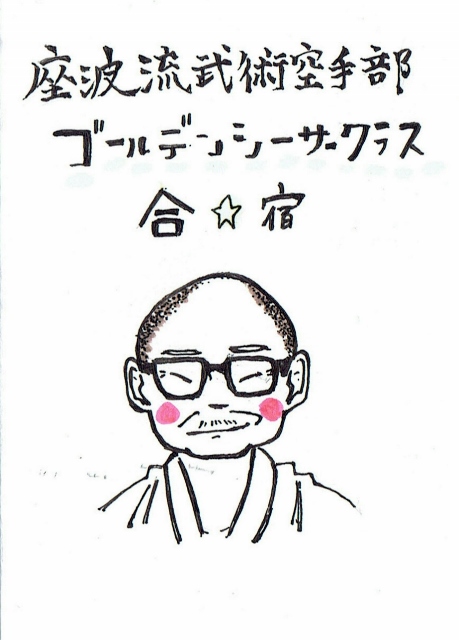 座波流武術空手部
ゴールデンシーサークラス
合☆宿